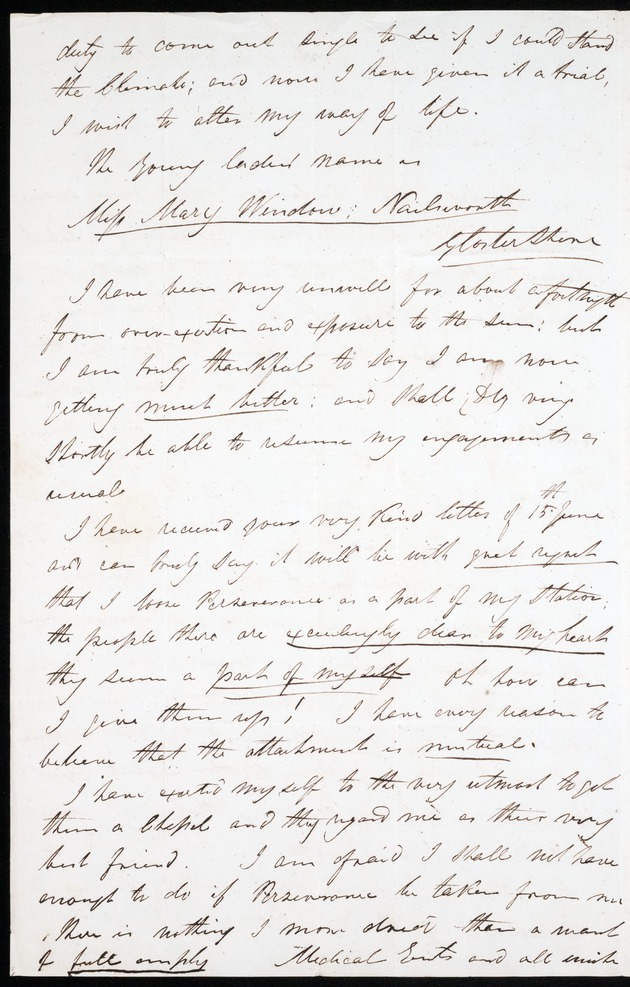 duty to come out single to see if I could stand
the Climate; and now I have given it a trial,
I wish to alter my way of life.
The young ladies name is
Miss Mary Window; Nailsworth
Glostershire
I have been very unwell for about a fortnight
from over-exertion and exposure to the sun; but
I am truly thankful to say I am now
getting much better: and shall
shortly be able to resume my engagements as
usual
I have received your very kind letter of 15th June
and can truly say it will be with great regret
that I loose Perseverance as a part of my Station;
the people there are exceedingly dear to my heart
they seem a part of myself Oh how can
I give them up! I have every reason to
believe that the attachment is mutual.
I have exerted myself to the very utmost to get
them a Chapel and they regard me as their very
best friend. I am afraid I shall not have
enough to do if Perseverance be taken from me
There is nothing I more dread than a want
of full employ Medical and all unite